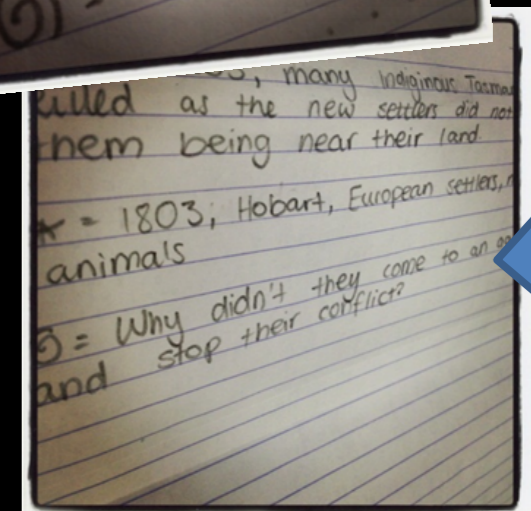 many Indiginous
killed as the new settlers did not
them being near their land.
* = 1803, Hobart, European settlers,
animals
Q = Why didn't they come to an
and stop their conflict?